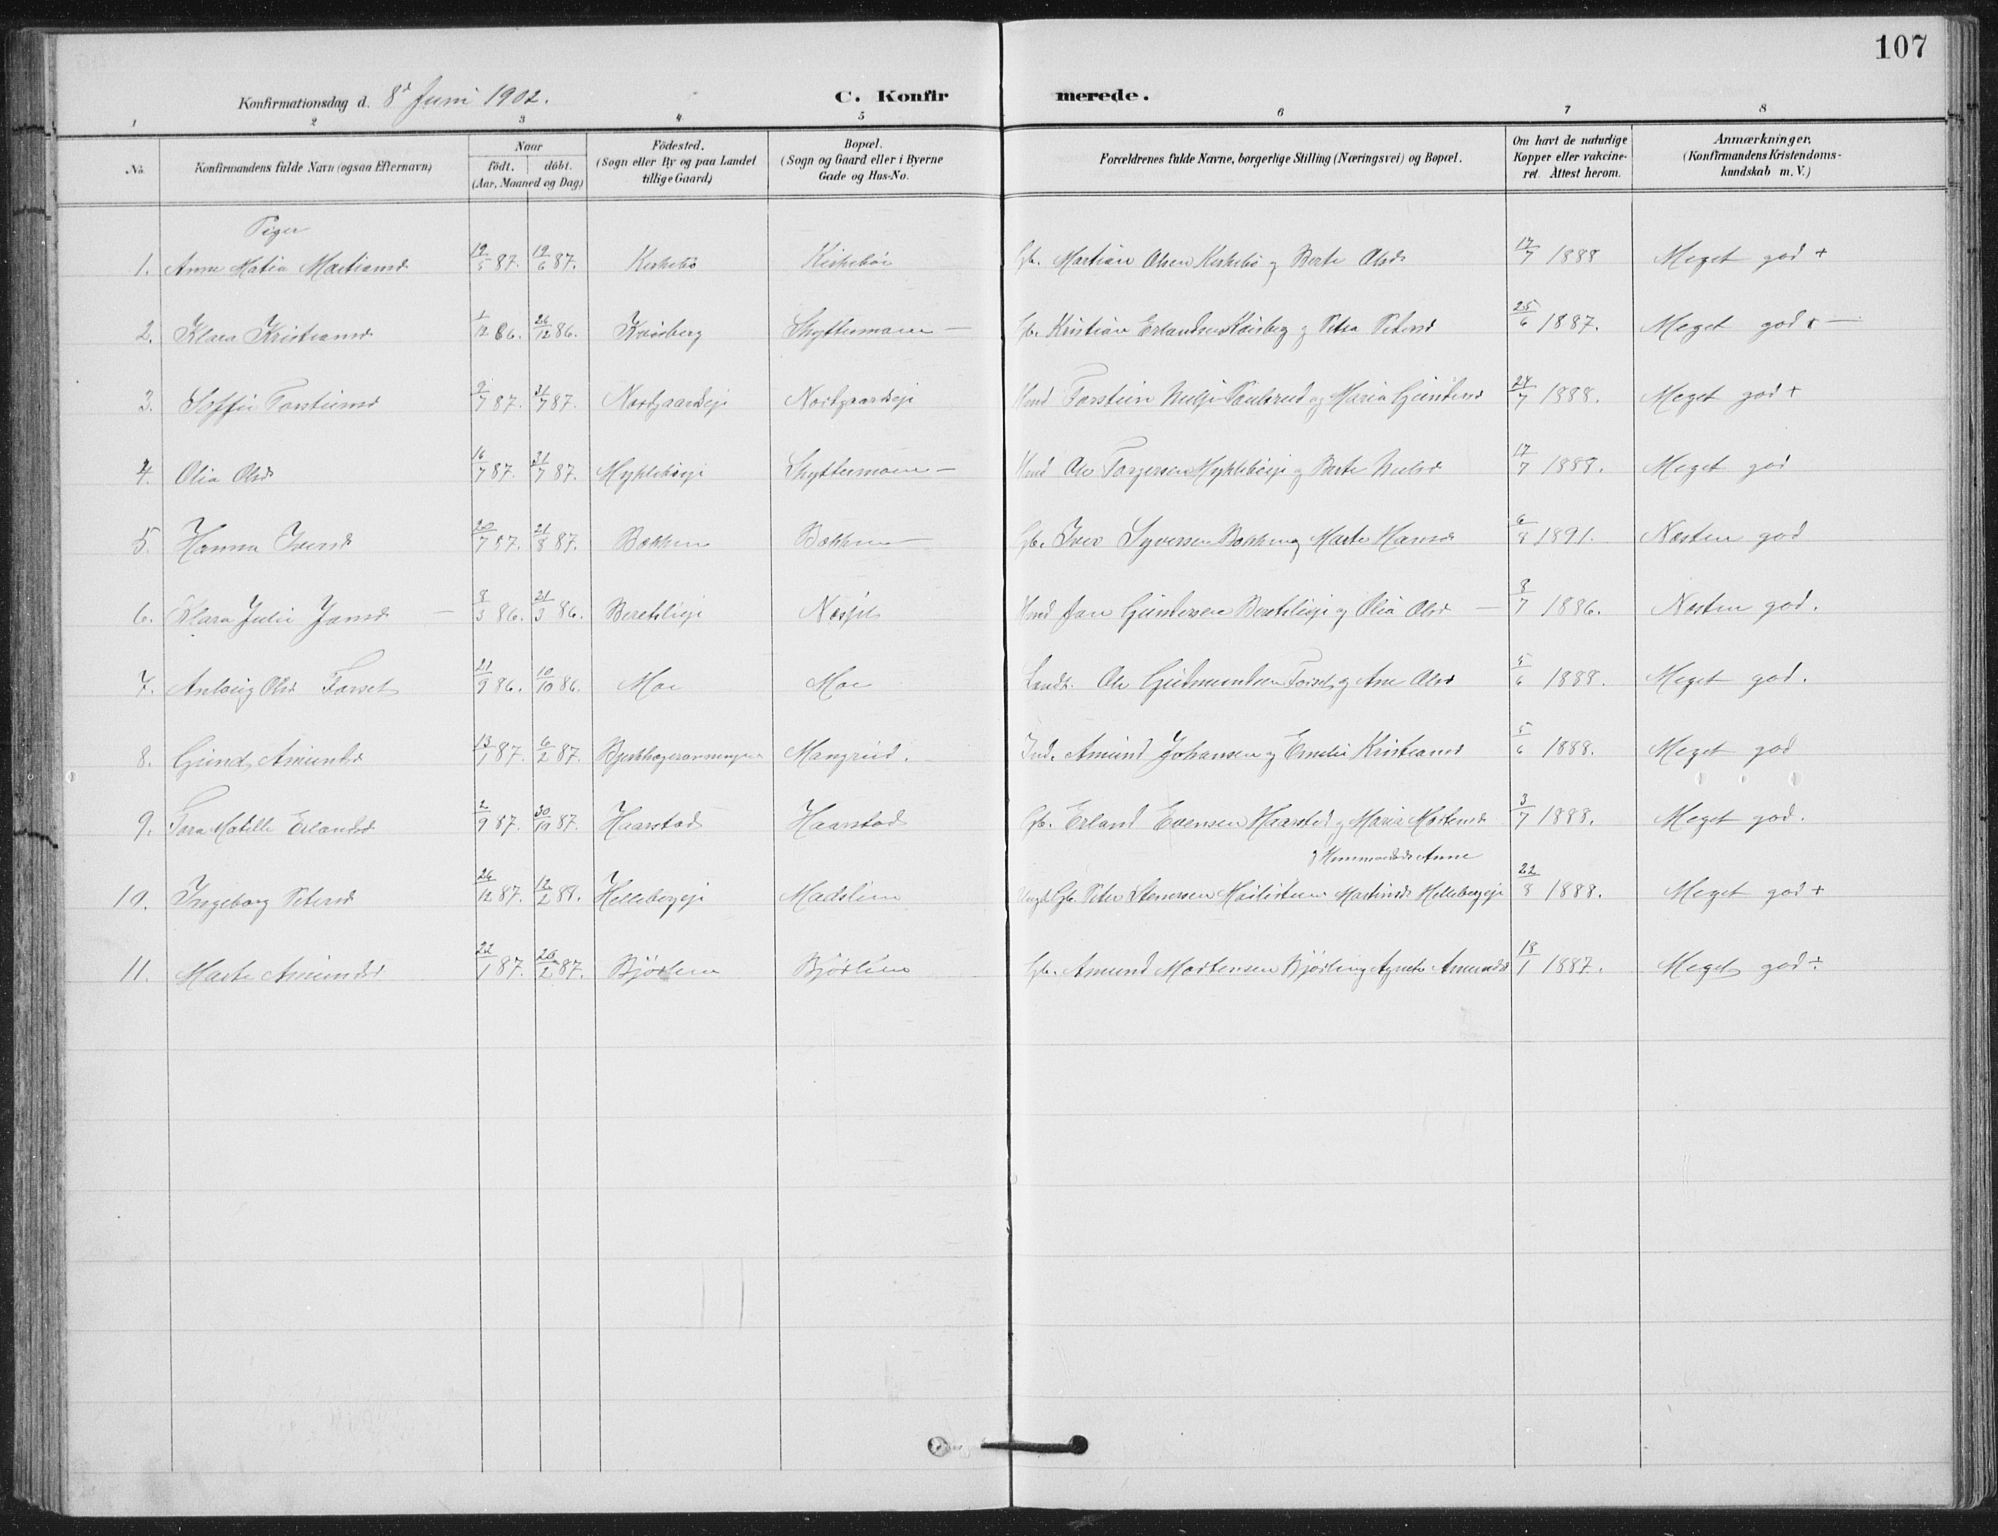 107
Konfirmationsdag d. 8d Juni 1902. C. Konfirmerede.
1 2 3 4 5 6 7 8
No. Konfirmandens fulde Navn (ogsaa Efternavn) Naar födt. döbt. (Aar, Maaned og Dag) Födested. (Sogn eller By og paa Landet tillige Gaard) Bopæl. (Sogn og Gaard eller i Byerne Gade og Hus-No. Forældrenes fulde Navne, borgerlige Stilling (Næringsvei) og Bopæl. Om havt de naturlige Kopper eller vakcineret. Attest herom. Anmærkninger, (Konfirmandens Kristendomskundskab m. V.)
Piger
1. Anne Matia Martiansd 19/5 87. 19/6 87. Kirkebö Kirkebö Gb. Martian Olsen Kirkebö og Berte Olsd. 17/7 1888 Meget god +
2. Klara Kristiansd 1/12 86. 26/12 86. Skyttermoen — Gb. Kristian Erlandsen og Petra Petersd 25/6 1887. Meget god
3. Torsteinsd 9/7 87. 31/7 87. Nordgaardseje Nordgaardseje Torstein og Maria 24/7 1888. Meget god +
4. Olia Olsd 16/7 87. 31/7 87. Myklebyeje Skyttermoen — Ole Torgersen Myklebyeje og Berte Nilsd 17/7 1888. Meget god
5. Hanna Iversd 20/7 87. 21/8 87. Bakken Bakken — Gb. Iver Syversen Bakken og Marte Hansd 6/8 1891. Næsten god
6. Klara Julie Jansd — 8/3 86. 21/3 86. Jan Gundersen og Olia Olsd — 8/7 1886. Næsten god.
7. Olsd Forset 21/9 86. 10/10 86. Moe Moe Ole Gudmundsen Forset og Ane Olsd 5/6 1888. Meget god.
8. Gund. Amundsd 13/1 87. 6/2 87. Mangrud. Ind. Amund Johansen og Emilie Kristiansd 5/6 1888. Meget god
9. Tora Matille Erlandsd 2/9 87. 30/10 87. Haarstad Haarstad Gb. Erland Evensen Haarstad og Maria Mortensd 3/7 1888. Meget god.
Anne
10. Ingeborg Petersd 26/12 87. 12/2 88. Hellebergeje Madslien Peter Stenersen Martinsd. Hellebergeje 22/8 1888. Meget god +
11. Marte Amundsd 22/1 87. 20/2 87. Bjørlien Bjørlien Gb. Amund Mortensen Bjørlien og Agnete Amundsd 18/1 1887. Meget god ÷